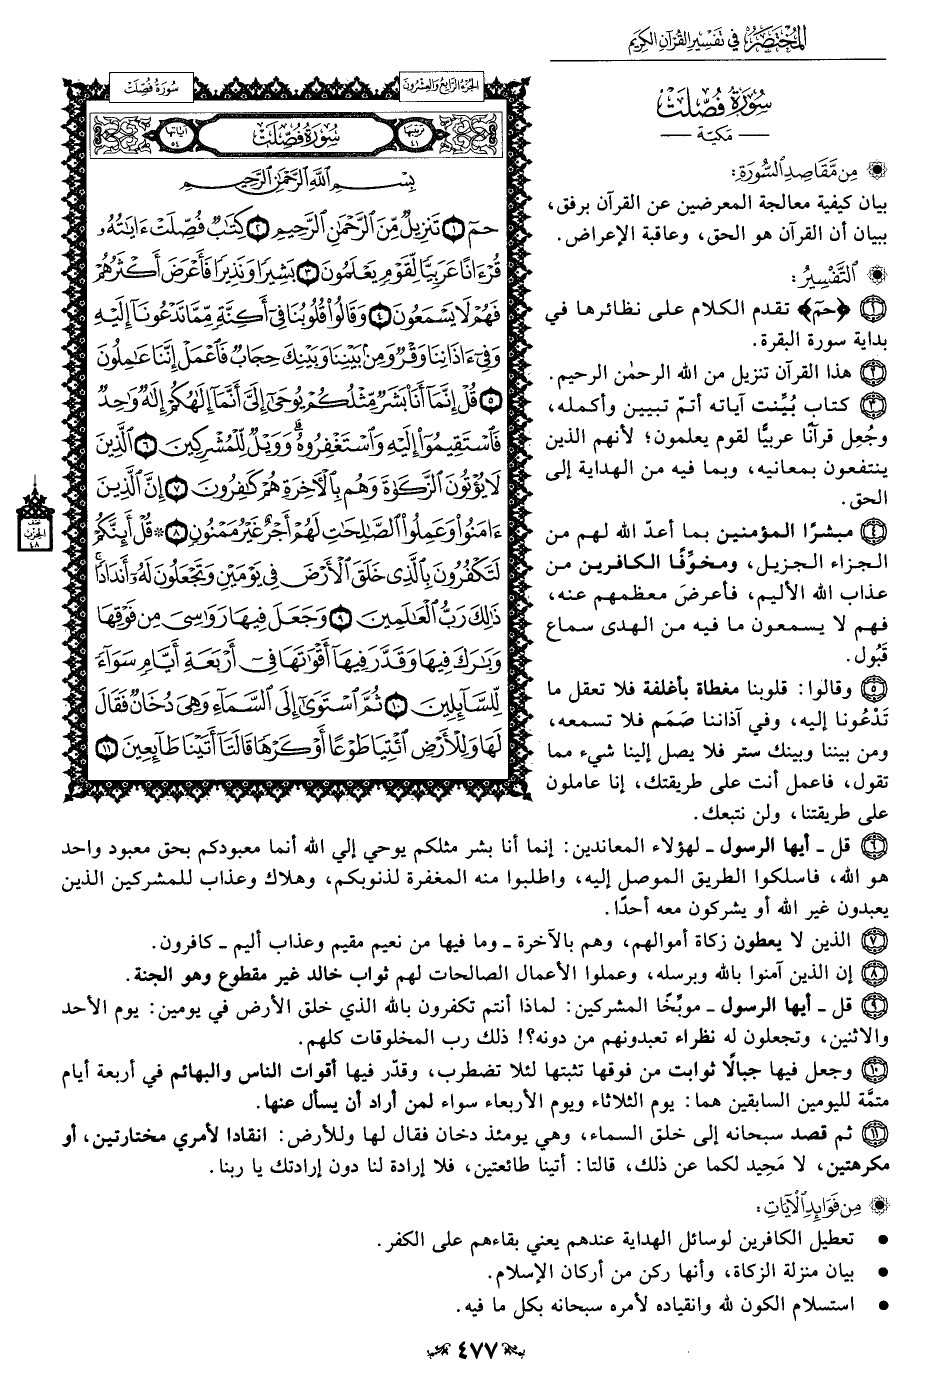 المُخْتَصَرُ فِي تَفْسِيرِ القُرْآنِ الكِرِيمِ
سُورَةُ فُصِّلَتْ
الجُزْءُ الرَّابِعُ وَالعِشْرُونَ
سُورَةُ فُصِّلَتْ
ترتيبها ٤١
آياتها ٥٤
بِسْمِ ٱللَّهِ ٱلرَّحْمَٰنِ ٱلرَّحِيمِ
حمٓ ١ تَنزِيلٌ مِّنَ ٱلرَّحْمَٰنِ ٱلرَّحِيمِ ٢ كِتَٰبٌ فُصِّلَتْ ءَايَٰتُهُۥ
قُرْءَانًا عَرَبِيًّا لِّقَوْمٍ يَعْلَمُونَ ٣ بَشِيرًا وَنَذِيرًا فَأَعْرَضَ أَكْثَرُهُمْ
فَهُمْ لَا يَسْمَعُونَ ٤ وَقَالُوا۟ قُلُوبُنَا فِىٓ أَكِنَّةٍ مِّمَّا تَدْعُونَآ إِلَيْهِ
وَفِىٓ ءَاذَانِنَا وَقْرٌ وَمِنۢ بَيْنِنَا وَبَيْنِكَ حِجَابٌ فَٱعْمَلْ إِنَّنَا عَٰمِلُونَ
٥ قُلْ إِنَّمَآ أَنَا۠ بَشَرٌ مِّثْلُكُمْ يُوحَىٰٓ إِلَىَّ أَنَّمَآ إِلَٰهُكُمْ إِلَٰهٌ وَٰحِدٌ
فَٱسْتَقِيمُوٓا۟ إِلَيْهِ وَٱسْتَغْفِرُوهُ ۗ وَوَيْلٌ لِّلْمُشْرِكِينَ ٦ ٱلَّذِينَ
لَا يُؤْتُونَ ٱلزَّكَوٰةَ وَهُم بِٱلْءَاخِرَةِ هُمْ كَٰفِرُونَ ٧ إِنَّ ٱلَّذِينَ
ءَامَنُوا۟ وَعَمِلُوا۟ ٱلصَّٰلِحَٰتِ لَهُمْ أَجْرٌ غَيْرُ مَمْنُونٍ ٨ ۞ قُلْ أَئِنَّكُمْ
لَتَكْفُرُونَ بِٱلَّذِى خَلَقَ ٱلْأَرْضَ فِى يَوْمَيْنِ وَتَجْعَلُونَ لَهُۥٓ أَندَادًا ۚ
ذَٰلِكَ رَبُّ ٱلْعَٰلَمِينَ ٩ وَجَعَلَ فِيهَا رَوَٰسِىَ مِن فَوْقِهَا
وَبَٰرَكَ فِيهَا وَقَدَّرَ فِيهَآ أَقْوَٰتَهَا فِىٓ أَرْبَعَةِ أَيَّامٍ سَوَآءً
لِّلسَّآئِلِينَ ١٠ ثُمَّ ٱسْتَوَىٰٓ إِلَى ٱلسَّمَآءِ وَهِىَ دُخَانٌ فَقَالَ
لَهَا وَلِلْأَرْضِ ٱئْتِيَا طَوْعًا أَوْ كَرْهًا قَالَتَآ أَتَيْنَا طَآئِعِينَ ١١
نصف
الحزب
٤٨
سُورَةُ فُصِّلَتْ
— مَكيّة —
مِن مَّقَاصِدِ ٱلسُّورَةِ:
بيان كيفية معالجة المعرضين عن القرآن برفق،
ببيان أن القرآن هو الحق، وعاقبة الإعراض.
ٱلتَّفْسِيرُ:
١ ﴿حمٓ﴾ تقدم الكلام على نظائرها في
بداية سورة البقرة.
٢ هذا القرآن تنزيل من الله الرحمٰن الرحيم.
٣ كتاب بُيِّنت آياته أتمّ تبيين وأكمله،
وجُعِل قرآنًا عربيًّا لقوم يعلمون؛ لأنهم الذين
ينتفعون بمعانيه، وبما فيه من الهداية إلى
الحق.
٤ مبشرًا المؤمنين بما أعدّ الله لهم من
الجزاء الجزيل، ومخوِّفًا الكافرين من
عذاب الله الأليم، فأعرضَ معظمهم عنه،
فهم لا يسمعون ما فيه من الهدى سماع
قَبُول.
٥ وقالوا: قلوبنا مغطاة بأغلفة فلا تعقل ما
تَدْعُونا إليه، وفي آذاننا صَمَم فلا تسمعه،
ومن بيننا وبينك ستر فلا يصل إلينا شيء مما
تقول، فاعمل أنت على طريقتك، إنا عاملون
على طريقتنا، ولن نتبعك.
٦ قل ـ أيها الرسول ـ لهؤلاء المعاندين: إنما أنا بشر مثلكم يوحي إلي الله أنما معبودكم بحق معبود واحد
هو الله، فاسلكوا الطريق الموصل إليه، واطلبوا منه المغفرة لذنوبكم، وهلاك وعذاب للمشركين الذين
يعبدون غير الله أو يشركون معه أحدًا.
٧ الذين لا يعطون زكاة أموالهم، وهم بالآخرة ـ وما فيها من نعيم مقيم وعذاب أليم ـ كافرون.
٨ إن الذين آمنوا بالله وبرسله، وعملوا الأعمال الصالحات لهم ثواب خالد غير مقطوع وهو الجنة.
٩ قل ـ أيها الرسول ـ موبِّخًا المشركين: لماذا أنتم تكفرون بالله الذي خلق الأرض في يومين: يوم الأحد
والاثنين، وتجعلون له نظراء تعبدونهم من دونه؟! ذلك رب المخلوقات كلهم.
١٠ وجعل فيها جبالًا ثوابت من فوقها تثبتها لئلا تضطرب، وقدّر فيها أقوات الناس والبهائم في أربعة أيام
متمَّة لليومين السابقين هما: يوم الثلاثاء ويوم الأربعاء سواء لمن أراد أن يسأل عنها.
١١ ثم قصد سبحانه إلى خلق السماء، وهي يومئذ دخان فقال لها وللأرض: انقادا لأمري مختارتين، أو
مكرهتين، لا مَحِيد لكما عن ذلك، قالتا: أتينا طائعتين، فلا إرادة لنا دون إرادتك يا ربنا.
مِن فَوَائِدِ ٱلْآيَاتِ:
• تعطيل الكافرين لوسائل الهداية عندهم يعني بقاءهم على الكفر.
• بيان منزلة الزكاة، وأنها ركن من أركان الإسلام.
• استسلام الكون لله وانقياده لأمره سبحانه بكل ما فيه.
٤٧٧